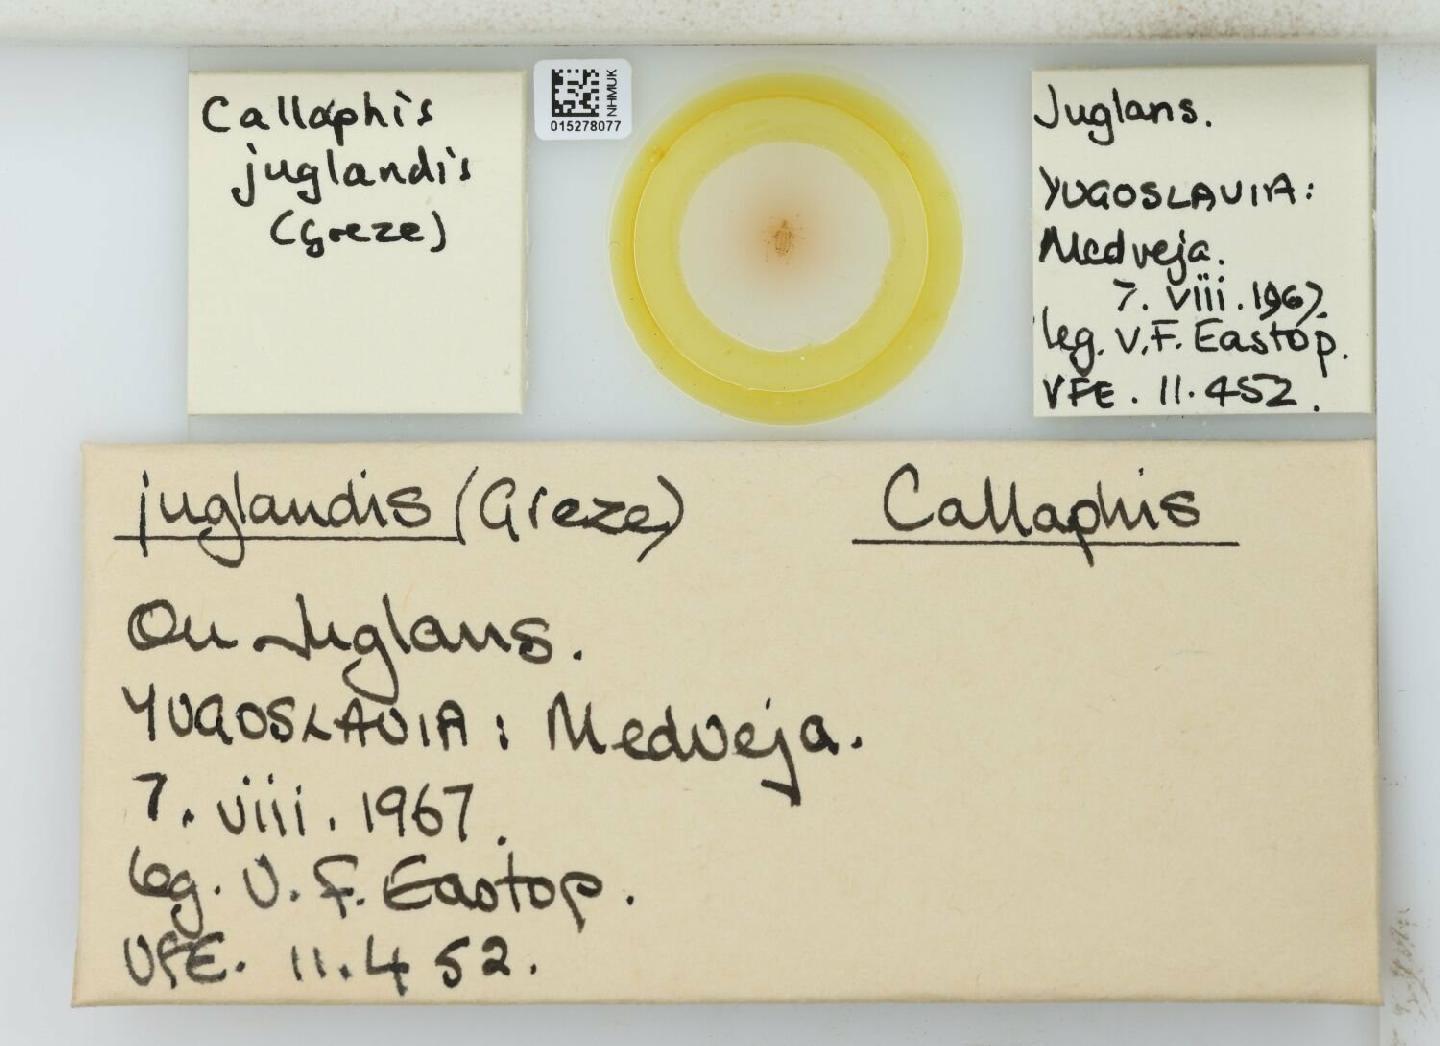 Callaphis
juglandis
(Greze)
NHMUK
015278077
Juglans.
YUGOSLAVIA:
Medveja.
7. viii. 1967.
leg. V.F. Eastop.
VFE. 11.452.
juglandis (Greze) Callaphis
On Juglans.
YUGOSLAVIA: Medveja.
7. viii. 1967.
leg. V. F. Eastop.
VFE. 11.452.